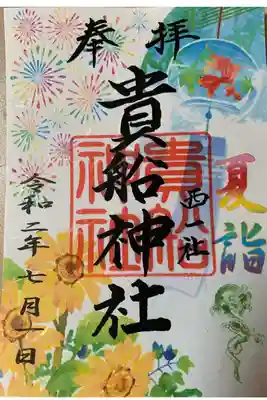 奉拝
夏詣
西一社
貴船神社
貴船神社
令和二年七月一日